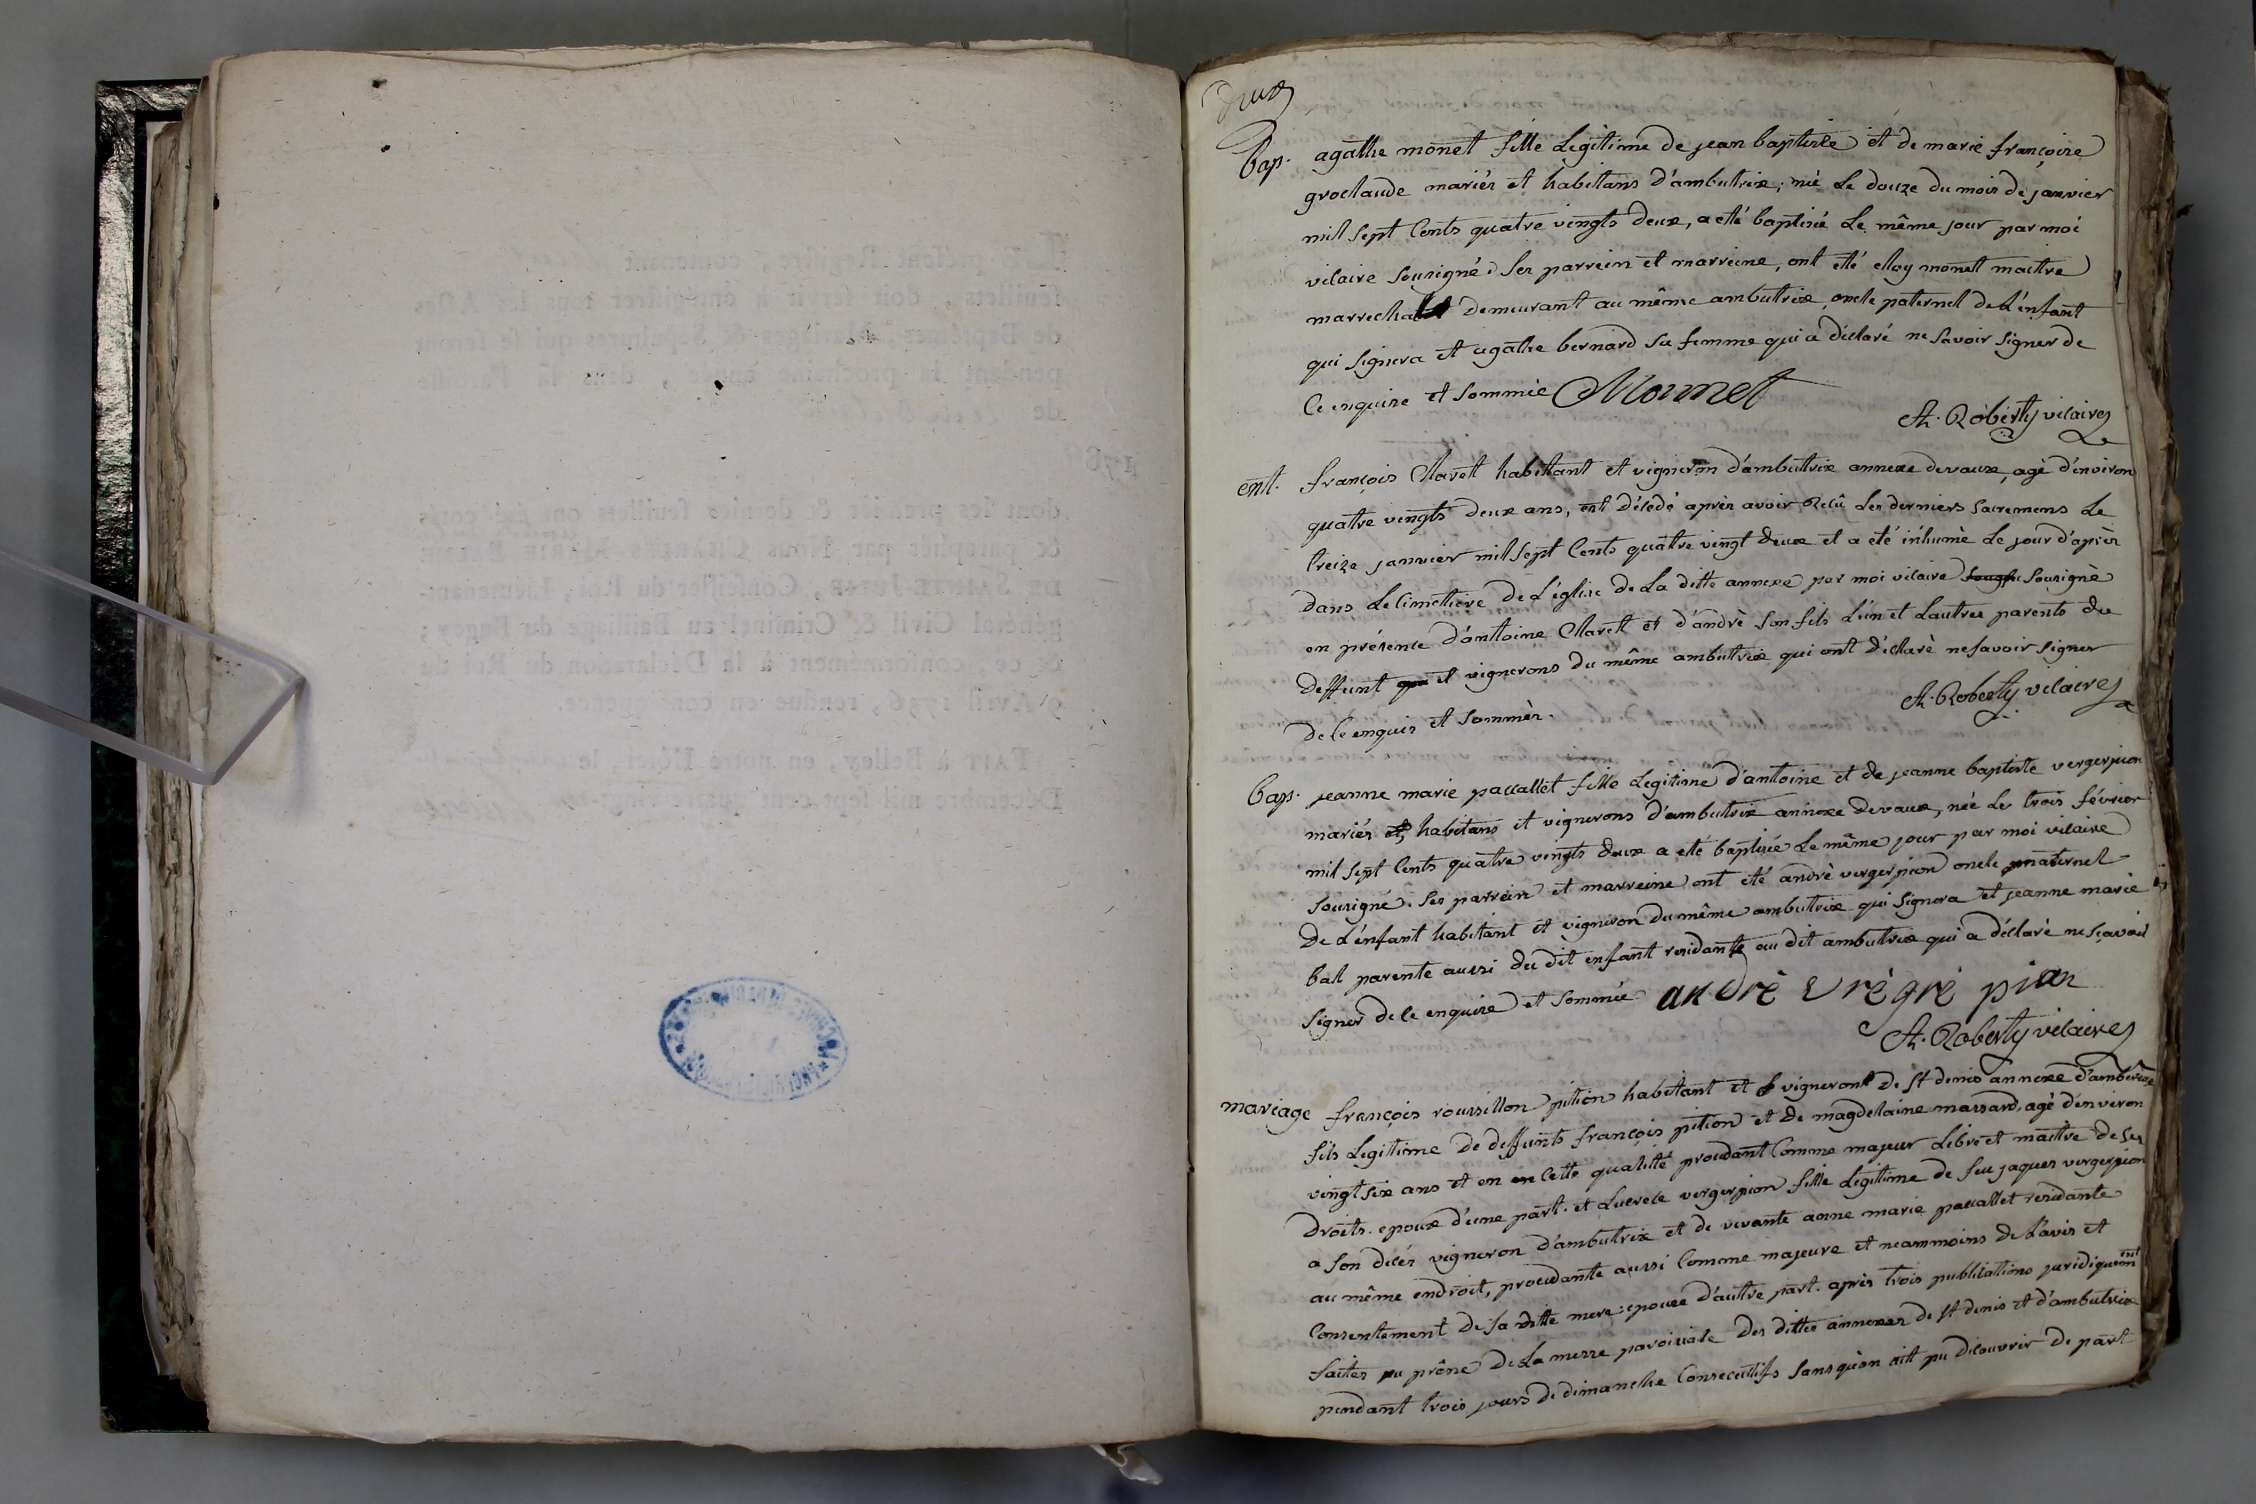 deux
Bap. agathe monet fille Legitime de jean baptiste et de marie françoise
groclaude mariés et habitans d'ambutrix, né Le douze du mois de janvier
mil sept Cents quatre vingts deux, a eté baptisé Le même jour par moi
vicaire sousigné. Ses parrein et marreine, ont eté elloy monet maitre
marrechal demeurant au même ambutrix, oncle paternel de L'enfant
qui signera et agathe bernard sa femme qui a déclaré ne savoir signer de
Ce enquise et sommée Mounet
A. Roberty vicaire
ent. françois Claret habitant et vigneron d'ambutrix annexe devaux, agé d'environ
quatre vingts deux ans, est décédé après avoir Reçû Les derniers sacremens Le
treize janvier mil sept Cents quatre vingt deux et a eté inhumé Le jour d'après
dans Le Cimetiere de L'église de La ditte annexe par moi vicaire sousigné
en présence d'antoine Claret et d'andrè son fils L'un et Lautres parents du
deffunt et vignerons du même ambutrix qui ont déclarè ne savoir signer
de Ce enquis et sommés.
A. Roberty vicaire
bap. jeanne marie pacallet fille Legitime d'antoine et de jeanne baptiste vergerpion
mariés et habitans et vignerons d'ambutrix annexe devaux, née Le trois février
mil sept Cents quatre vingts deux a eté baptisée Le même jour par moi vicaire
sousigné. Ses parrein et marreine ont eté andrè vergerpion oncle maternel
de L'enfant habitant et vigneron du même ambutrix qui signera et jeanne marie
bal parente aussi du dit enfant residante au dit ambutrix qui a déclaré ne sçavoir
signer de Ce enquise et sommée andrè vrègrè pion
A. Roberty vicaire
mariage françois roussillon pition habitant et vigneront de St denis annexe d'ambérieux
fils Legitime de deffunts françois pition et de magdelaine massard, agé d'environ
vingt six ans et en en Cette qualitté procedant Comme majeur Libre et maitre de ses
droits. epoux d'une part. et Lucrece vergerpion fille Legitime de feu jaques vergerpion
a son décès vigneron d'ambutrix et de vivante anne marie pacallet residante
au même endroit, procedante aussi Comme majeure et neammoins de L'avis et
Consentement de sa ditte mere: epouse d'autre part. après trois publications juridiquem̄ent
faites au prône de La messe paroissiale des dittes annexes de St denis et d'ambutrix
pendant trois jours de dimanche Consecutifs sans qu'on ait pu découvrir de part